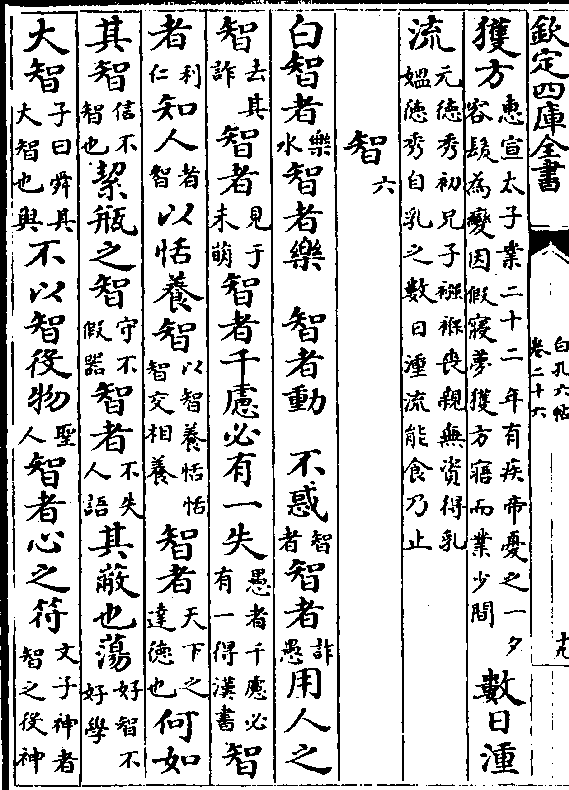 欽定四庫全書 白孔六帖 卷二十六 十九
獲方惠宣太子業二十二年有疾帝憂之一夕容髮為變因假寢夢獲方寤而業少間數日湩
流元德秀初兄子襁褓喪親無資得乳媼德秀自乳之數日湩流能食乃止
智六
白智者樂水智者樂 智者動 不惑智者智者詐愚用人之
智去其詐智者見于未萌智者千慮必有一失愚者千慮必有一得漢書智
者利仁知人者智以恬養智以智養恬恬智交相養智者天下之達德也何如
其智信不智也絜瓶之智守不假器智者不失人語其蔽也蕩好智不好學
大智子曰舜其大智也與不以智役物聖人智者心之符文子神者智之役神